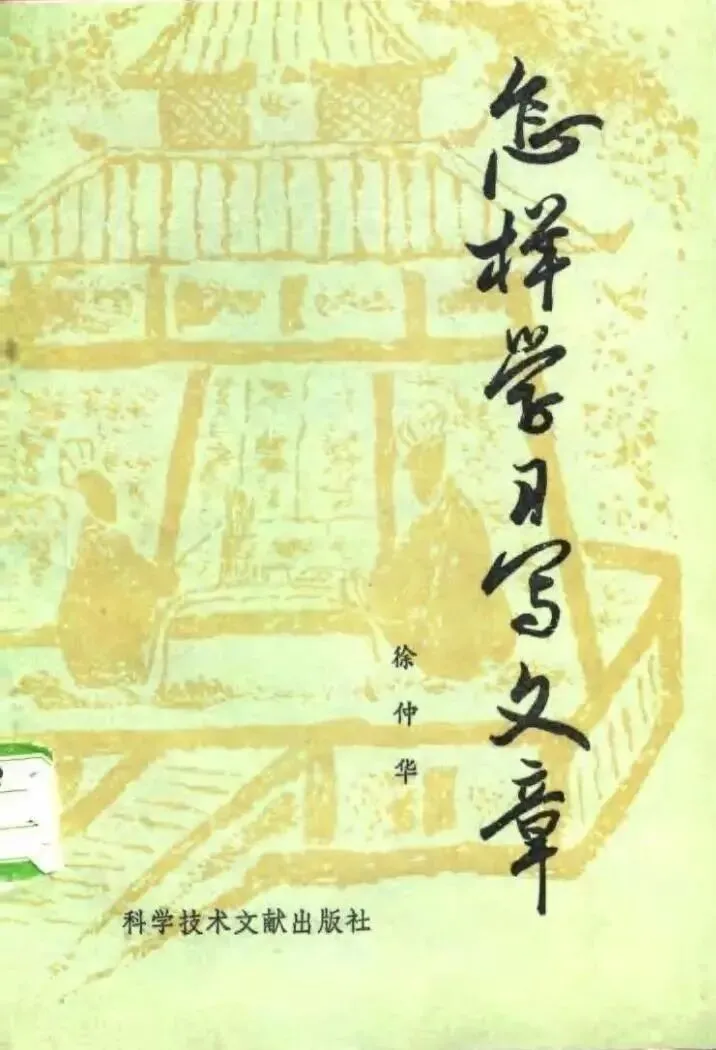 怎样学习写文章
徐仲华
科学技术文献出版社